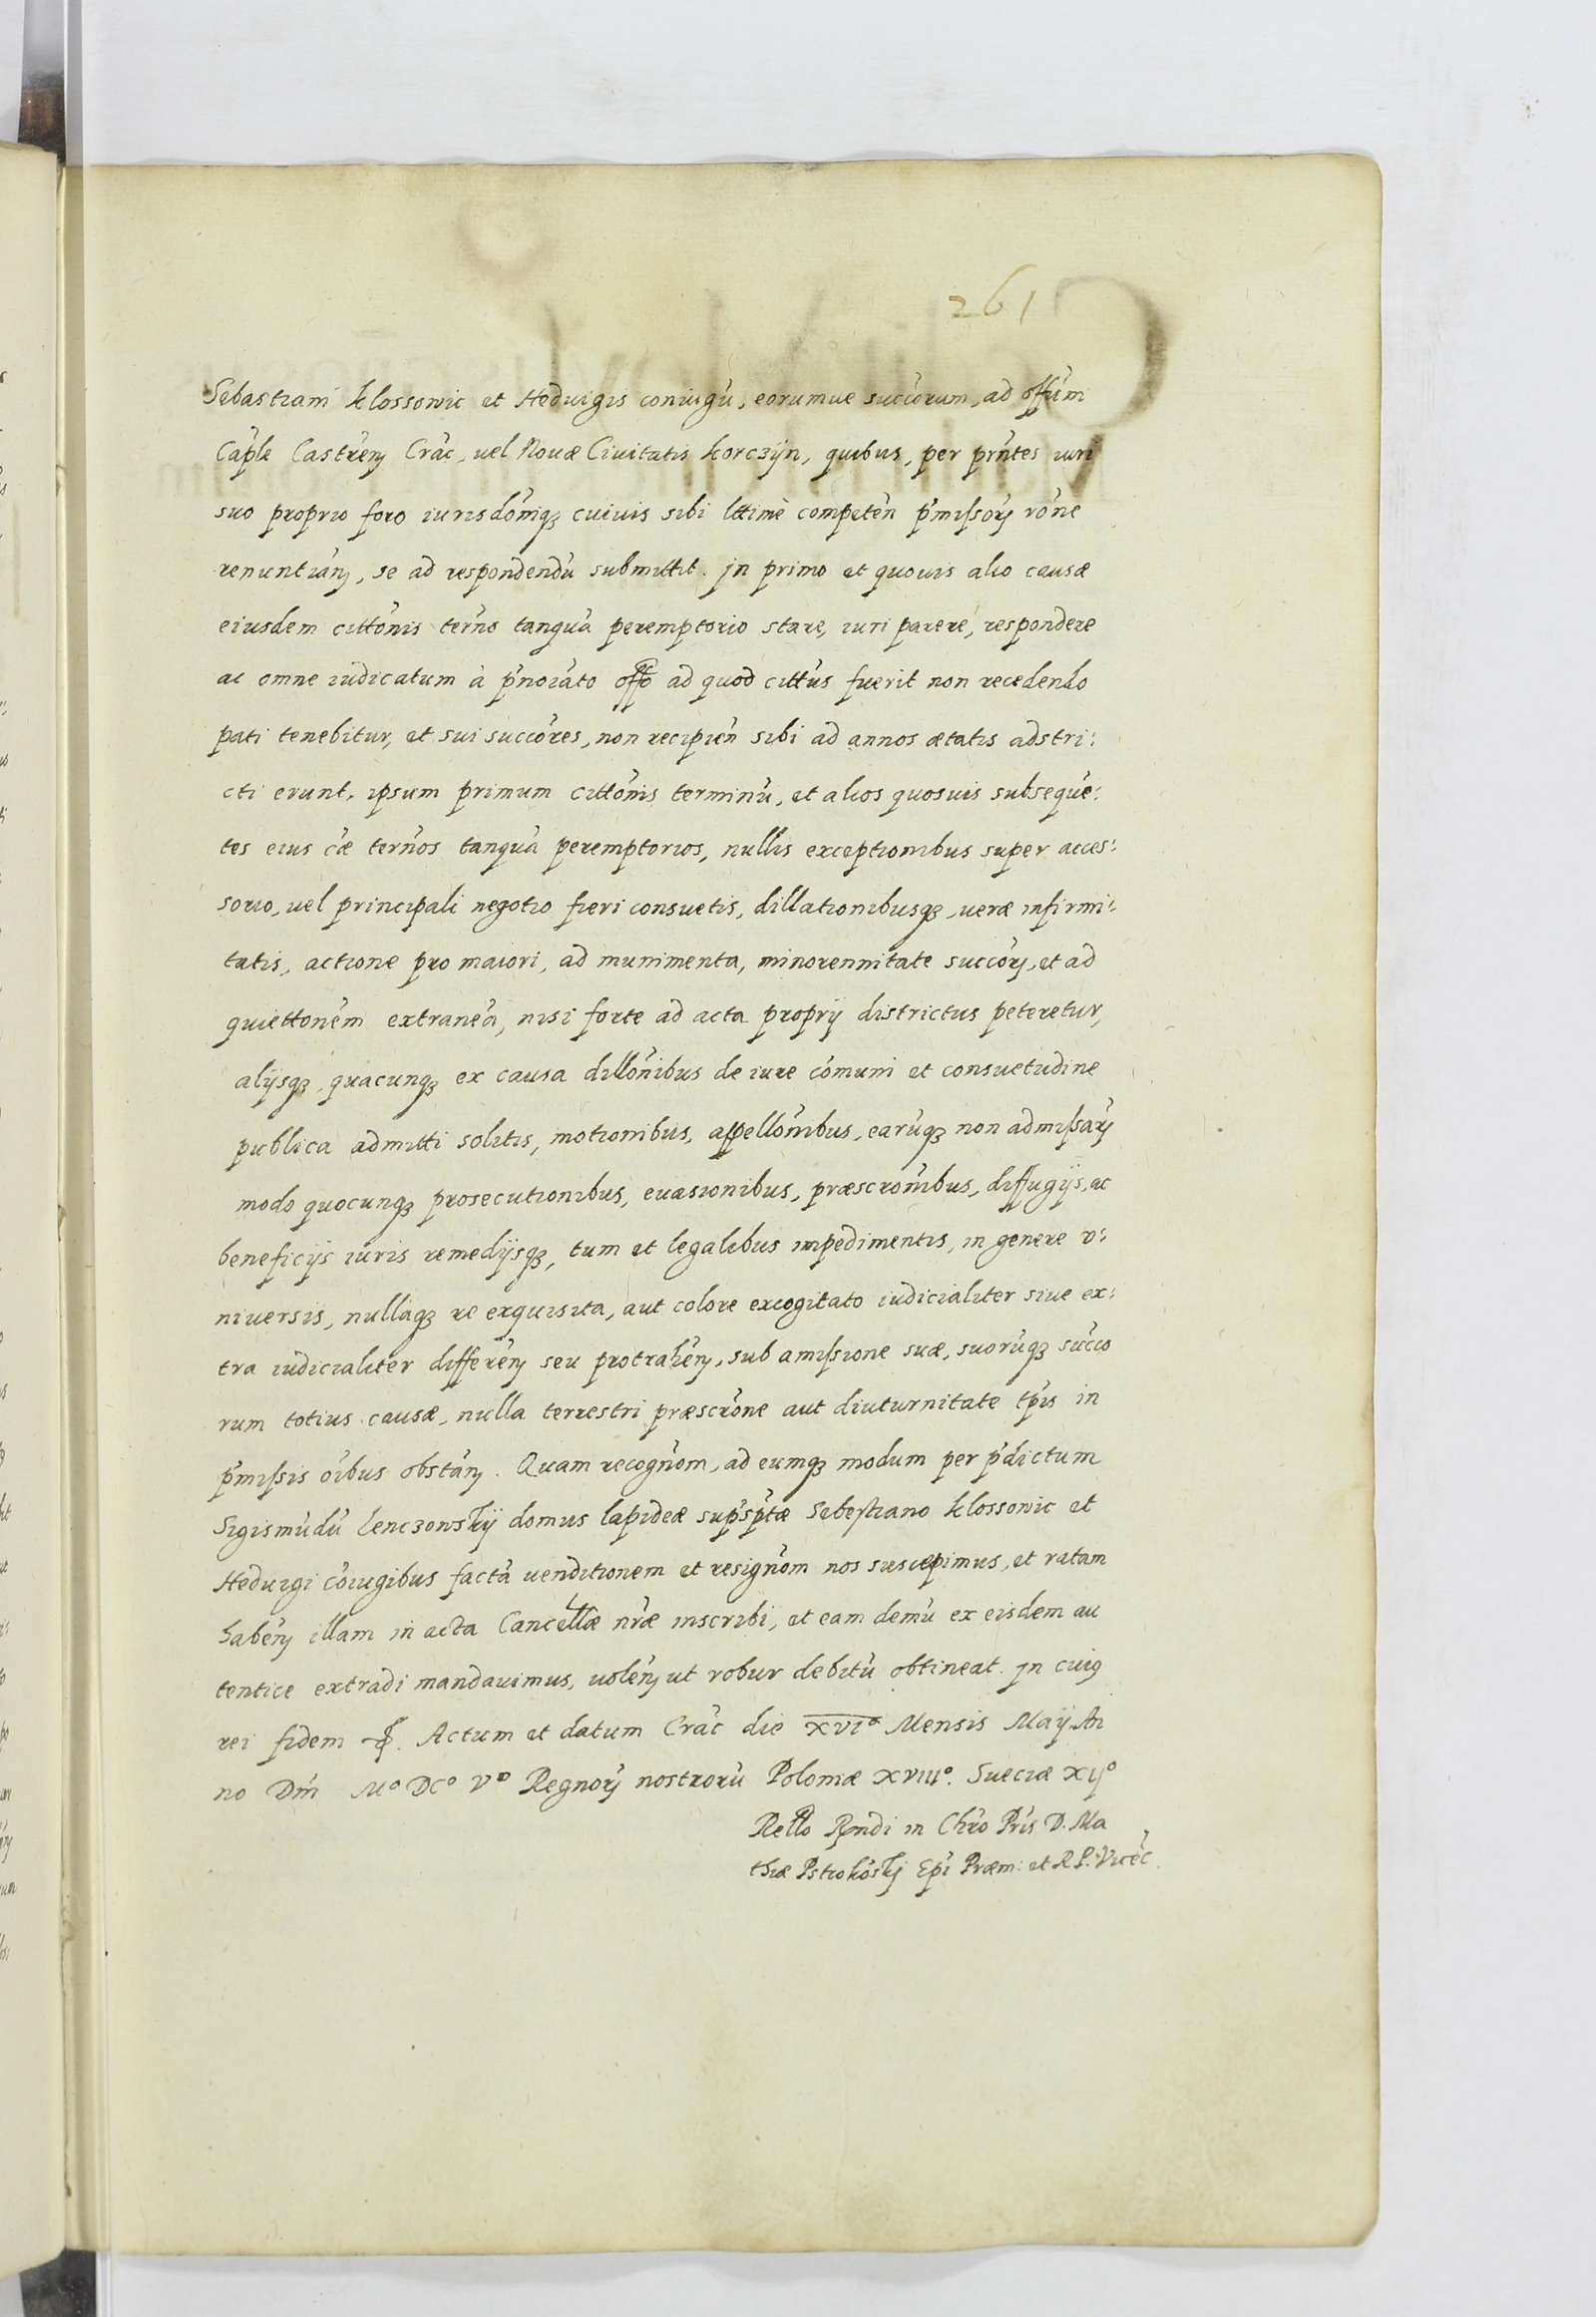 261
Sebastiani Klossowic et Hedvigis coniugũ, eorumue succorum, ad offũm
Caple Castreñ Crac, uel Nouæ Ciuitatis Korczÿn, quibus, per prñtes iuri
suo proprio foro iurisdomq; cuiuis sibi lttimè competen p̃missoꝝ rõne
renuntiañ, se ad respondendũ submittit. Jn primo et quouis alio causæ
eiusdem cittõnis terño tanquã peremptorio stare, iuri parere, respondere
ac omne iudicatum à p̃noiato offo ad quod cittus fuerit non recedendo
pati tenebitur, et sui succores, non recipien sibi ad annos ætatis adstri:
cti erunt, ipsum primum cittõnis terminũ, et alios quosuis subseque:
tes eius cæ terños tanquã peremptorios, nullis exceptionibus super acces:
sorio, uel principali negotio fieri consuetis, dillationibusq;, ueræ infirmi:
tatis, actione pro maiori, ad munimenta, minorennitate succoꝝ, et ad
quiettonem extraneã, nisi forte ad acta proprÿ districtus peteretur,
alÿsq;, quacunq; ex causa dillõnibus de iure cõmuni et consuetudine
publica admitti solitis, motionibus, appellõnibus, earũq; non admissaꝝ
modo quocunq; prosecutionibus, euasionibus, præscrõnibus, diffugÿs, ac
beneficÿs iuris remedÿsq;, tum et legalibus impedimentis, in genere v:
niuersis, nullaq; re exquisita, aut colore excogitato iudicialiter siue ex:
tra iudicialiter differeñ seu protraheñ, sub amissione suæ, suorũq; succo
rum totius causæ, nulla terrestri præscrõne aut diuturnitate tp̃is in
p̃missis oĩbus obstañ. Quam recognom, ad eumq; modum per p̃dictum
Sigismũdũ Lenczowskÿ domus lapideæ sup̃sp̃tæ Sebestiano Klossowic et
Hedvigi cõiugibus factã uenditionem et resignom nos suscepimus, et ratam
habeñ illam in acta Cancellæ nr̃æ inscribi, et eam demũ ex eisdem au
tentice extradi mandauimus, uoleñ ut robur debitũ obtineat. Jn cuiꝯ
rei fidem &. Actum et datum Crac die XVIᵃ Mensis Maÿ. An
no Dm̃i Mº DCº Vº Regnoꝝ nostrorũ Poloniæ XVIIIº. Sueciæ XIJº
Rello Rñdi in Chr̃o Pr̃is D. Ma
thiæ Pstrokõskj Ep̃i Præm: et R P. Vicec.